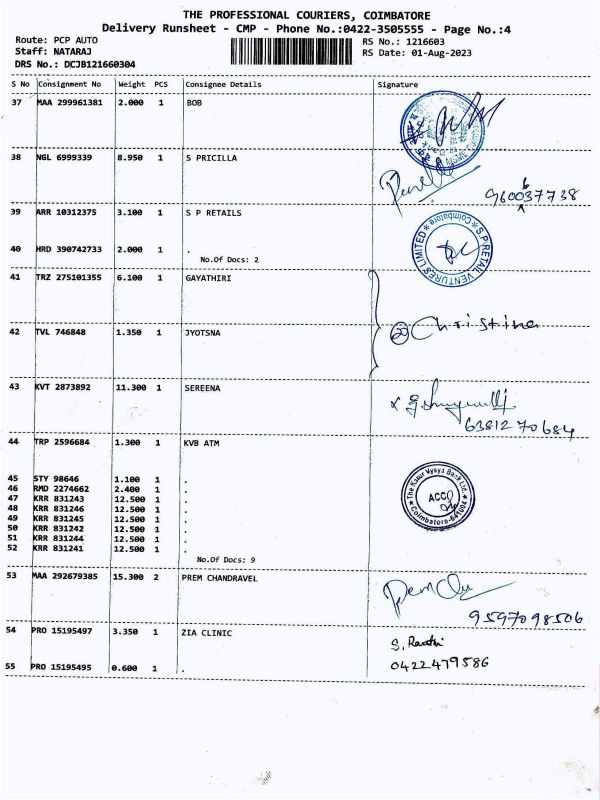 THE PROFESSIONAL COURIERS, COIMBATORE
Delivery Runsheet - CMP - Phone No.:0422-3505555 - Page No.:4
Route: PCP AUTO RS No.: 1216603
Staff: NATARAJ RS Date: 01-Aug-2023
DRS No.: DCJB121660304
S No Consignment No Weight PCS Consignee Details Signature
37 MAA 299961381 2.000 1 BOB
38 NGL 6999339 8.950 1 S PRICILLA
960037738
6
39 ARR 10312375 3.100 1 S P RETAILS
S.P.RETAIL VENTURES LIMITED * Coimbatore *
40 HRD 390742733 2.000 1 .
No.Of Docs: 2
41 TRZ 275101355 6.100 1 GAYATHIRI
Christina
42 TVL 746848 1.350 1 JYOTSNA
43 KVT 2873892 11.300 1 SEREENA
6381270684
44 TRP 2596684 1.300 1 KVB ATM
The Karur Vysya Bank Ltd.
ACC
* Coimbatore-641004 *
45 STY 98646 1.100 1 .
46 RMD 2274662 2.400 1 .
47 KRR 831243 12.500 1 .
48 KRR 831246 12.500 1 .
49 KRR 831245 12.500 1 .
50 KRR 831242 12.500 1 .
51 KRR 831244 12.500 1 .
52 KRR 831241 12.500 1 .
No.Of Docs: 9
53 MAA 292679385 15.300 2 PREM CHANDRAVEL
9597098506
54 PRO 15195497 3.350 1 ZIA CLINIC
S. Revathi
0422479586
55 PRO 15195495 0.600 1 .